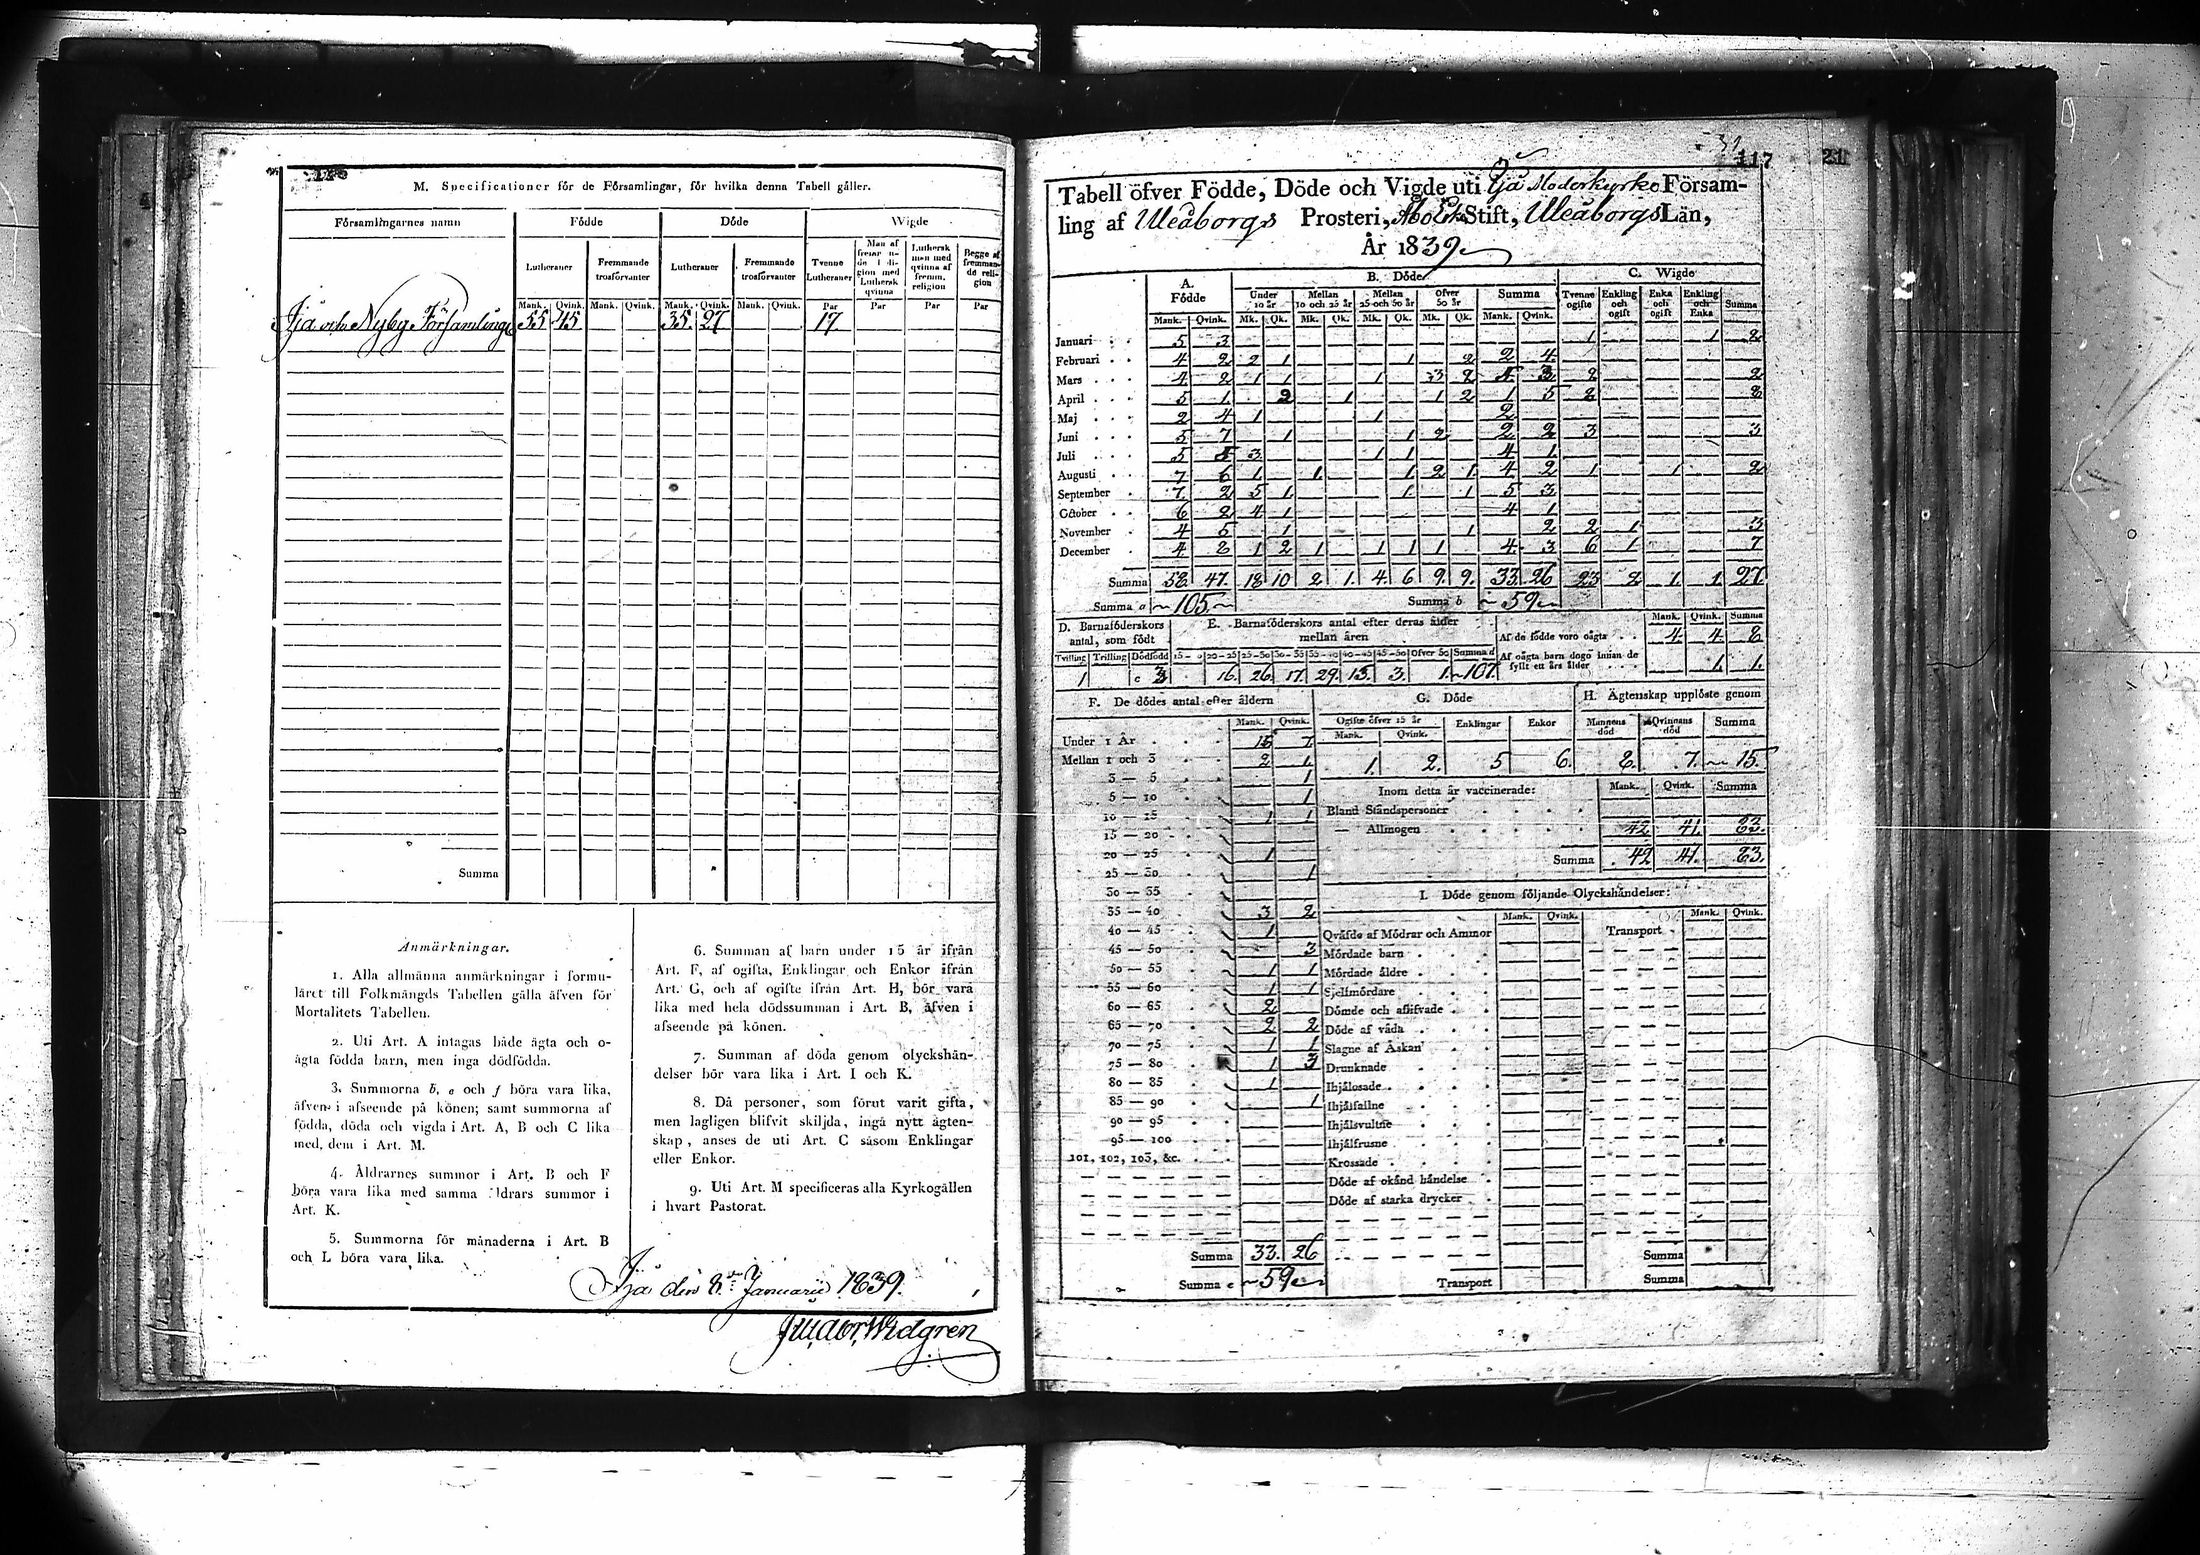 M. Specificationer för de Församlingar, för hvilka denna Tabell gäller.
Församlingarnes namn Födde Döde Wigde
Lutheraner Fremmande trosförvanter Lutheraner Fremmande trosförvanter Tvenne Lutheraner Luthersk man med qvinna af fremm. religion Begge af fremmande religion
Mank. Qvink. Mank. Qvink. Mank. Qvink. Mank. Qvink. Par Par Par Par
Ijå och Nyby Församlingar 55 45 35 27 17
Summa
Anmärkningar.
1. Alla allmänna anmärkningar i formu-
läret till Folkmängds Tabellen gälla äfven för
Mortalitets Tabellen.
2. Uti Art. A intagas både ägta och o-
ägta födda barn, men inga dödfödda.
3. Summorna b, e och f böra vara lika,
äfven i afseende på könen; samt summorna af
födda, döda och vigda i Art. A, B och C lika
med dem i Art. M.
4. Åldrarnes summor i Art. B och F
böra vara lika med samma åldrars summor i
Art. K.
5. Summorna för månaderna i Art. B
och L böra vara lika.
6. Summan af barn under 15 år ifrån
Art. F, af ogifta, Enklingar och Enkor ifrån
Art. G, och af ogifte ifrån Art. H, bör vara
lika med hela dödssumman i Art. B, äfven i
afseende på könen.
7. Summan af döda genom olyckshän-
delser bör vara lika i Art. I och K.
8. Då personer, som förut varit gifta,
men lagligen blifvit skiljda, ingå nytt ägten-
skap, anses de uti Art. C såsom Enklingar
eller Enkor.
9. Uti Art. M specificeras alla Kyrkogällen
i hvart Pastorat.
Ijå den 8 Januarii 1839.
Widgren
117
21
Tabell öfver Födde, Döde och Vigde uti Ijå Moderkyrko Försam-
ling af Uleåborgs Prosteri, Åbo Stift, Uleåborgs Län,
År 1839
A. Födde B. Döde C. Wigde
Under 10 år Mellan 10 och 25 år Mellan 25 och 50 år Öfver 50 år Summa Tvenne ogifte Enkling och ogift Enka och ogift Enkling och Enka Summa
Mank. Qvink. Mk. Qk. Mk. Qk. Mk. Qk. Mk. Qk. Mank. Qvink.
Januari 5 3 1 1 2
Februari 4 2 2 1 1 2 2 4
Mars 4 2 1 1 1 3 2 3 2 2
April 5 1 2 1 1 2 1 5 2 2
Maj 2 4 1 1 2
Juni 5 7 1 1 2 2 2 3 3
Juli 5 3 1 1 4 1
Augusti 7 6 1 1 1 2 1 4 2 1 1 2
September 7 2 5 1 1 1 5 3
October 6 2 4 1 4 1
November 4 5 1 1 2 2 1 3
December 4 8 1 2 1 1 1 1 4 3 6 1 7
Summa 58 47 18 10 2 1 4 6 9 9 33 26 23 2 1 1 27
Summa a 105 Summa b 59
D. Barnaföderskors antal, som födt E. Barnaföderskors antal efter deras ålder mellan åren Mank. Qvink. Summa
Af de födde voro oägta 4 4 8
Tvilling Trilling Dödfödd 20-25 25-30 30-35 35-40 40-45 45-50 Öfver 50 Summa d
Af oägta barn dogo innan de fyllt ett års ålder 1 1
1 c 3 16 26 17 29 15 3 1 107
F. De dödes antal efter åldern G. Döde H. Ägtenskap upplöste genom
Mank. Qvink. Ogifte öfver 15 år Enklingar Enkor Mannens död Qvinnans död Summa
Mank. Qvink.
1 2 5 6 8 7 15
Under 1 År 15 7
Mellan 1 och 3 2 1
3 — 5 1
5 — 10 1
10 — 15 1 1
15 — 20
20 — 25 1
25 — 30 1
30 — 35
35 — 40 3 2
40 — 45 1
45 — 50 3
50 — 55 1 1
55 — 60 1 1
60 — 65 2
65 — 70 2 2
70 — 75 1 1
75 — 80 1 3
80 — 85 1
85 — 90 1
90 — 95
95 — 100
101, 102, 103, &c.
Summa 33 26
Summa e 59
Inom detta år vaccinerade: Mank. Qvink. Summa
Bland Ståndspersoner
— Allmogen 42 41 83
Summa 42 41 83
I. Döde genom följande Olyckshändelser:
Mank. Qvink. Mank. Qvink.
Qväfde af Mödrar och Ammor Transport
Mördade barn
Mördade äldre
Sjelfmördare
Dömde och aflifvade
Döde af våda
Slagne af Åskan
Drunknade
Ihjälosade
Ihjälfallne
Ihjälsvultne
Ihjälfrusne
Krossade
Döde af okänd händelse
Döde af starka drycker
Summa
Transport Summa